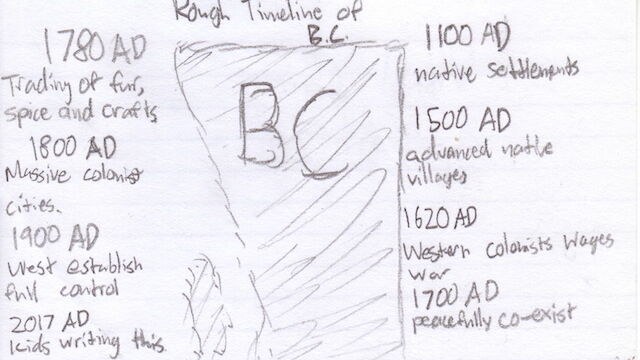 Rough Timeline of
B.C.
1780 AD
Trading of fur,
spice and crafts
1800 AD
Massive colonist
cities.
1900 AD
West establish
full control
2017 AD
kids writing this.
BC
1100 AD
native settlements
1500 AD
advanced native
villages
1620 AD
Western colonists wages
war
1700 AD
peacefully co-exist